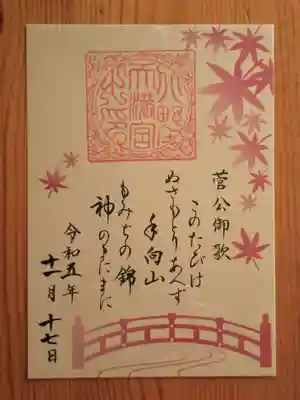 北野
天満宮
之印
菅公御歌
このたびは
ぬさもとりあへず
手向山
もみちの錦
神のまにまに
令和五年
十一月 十七日